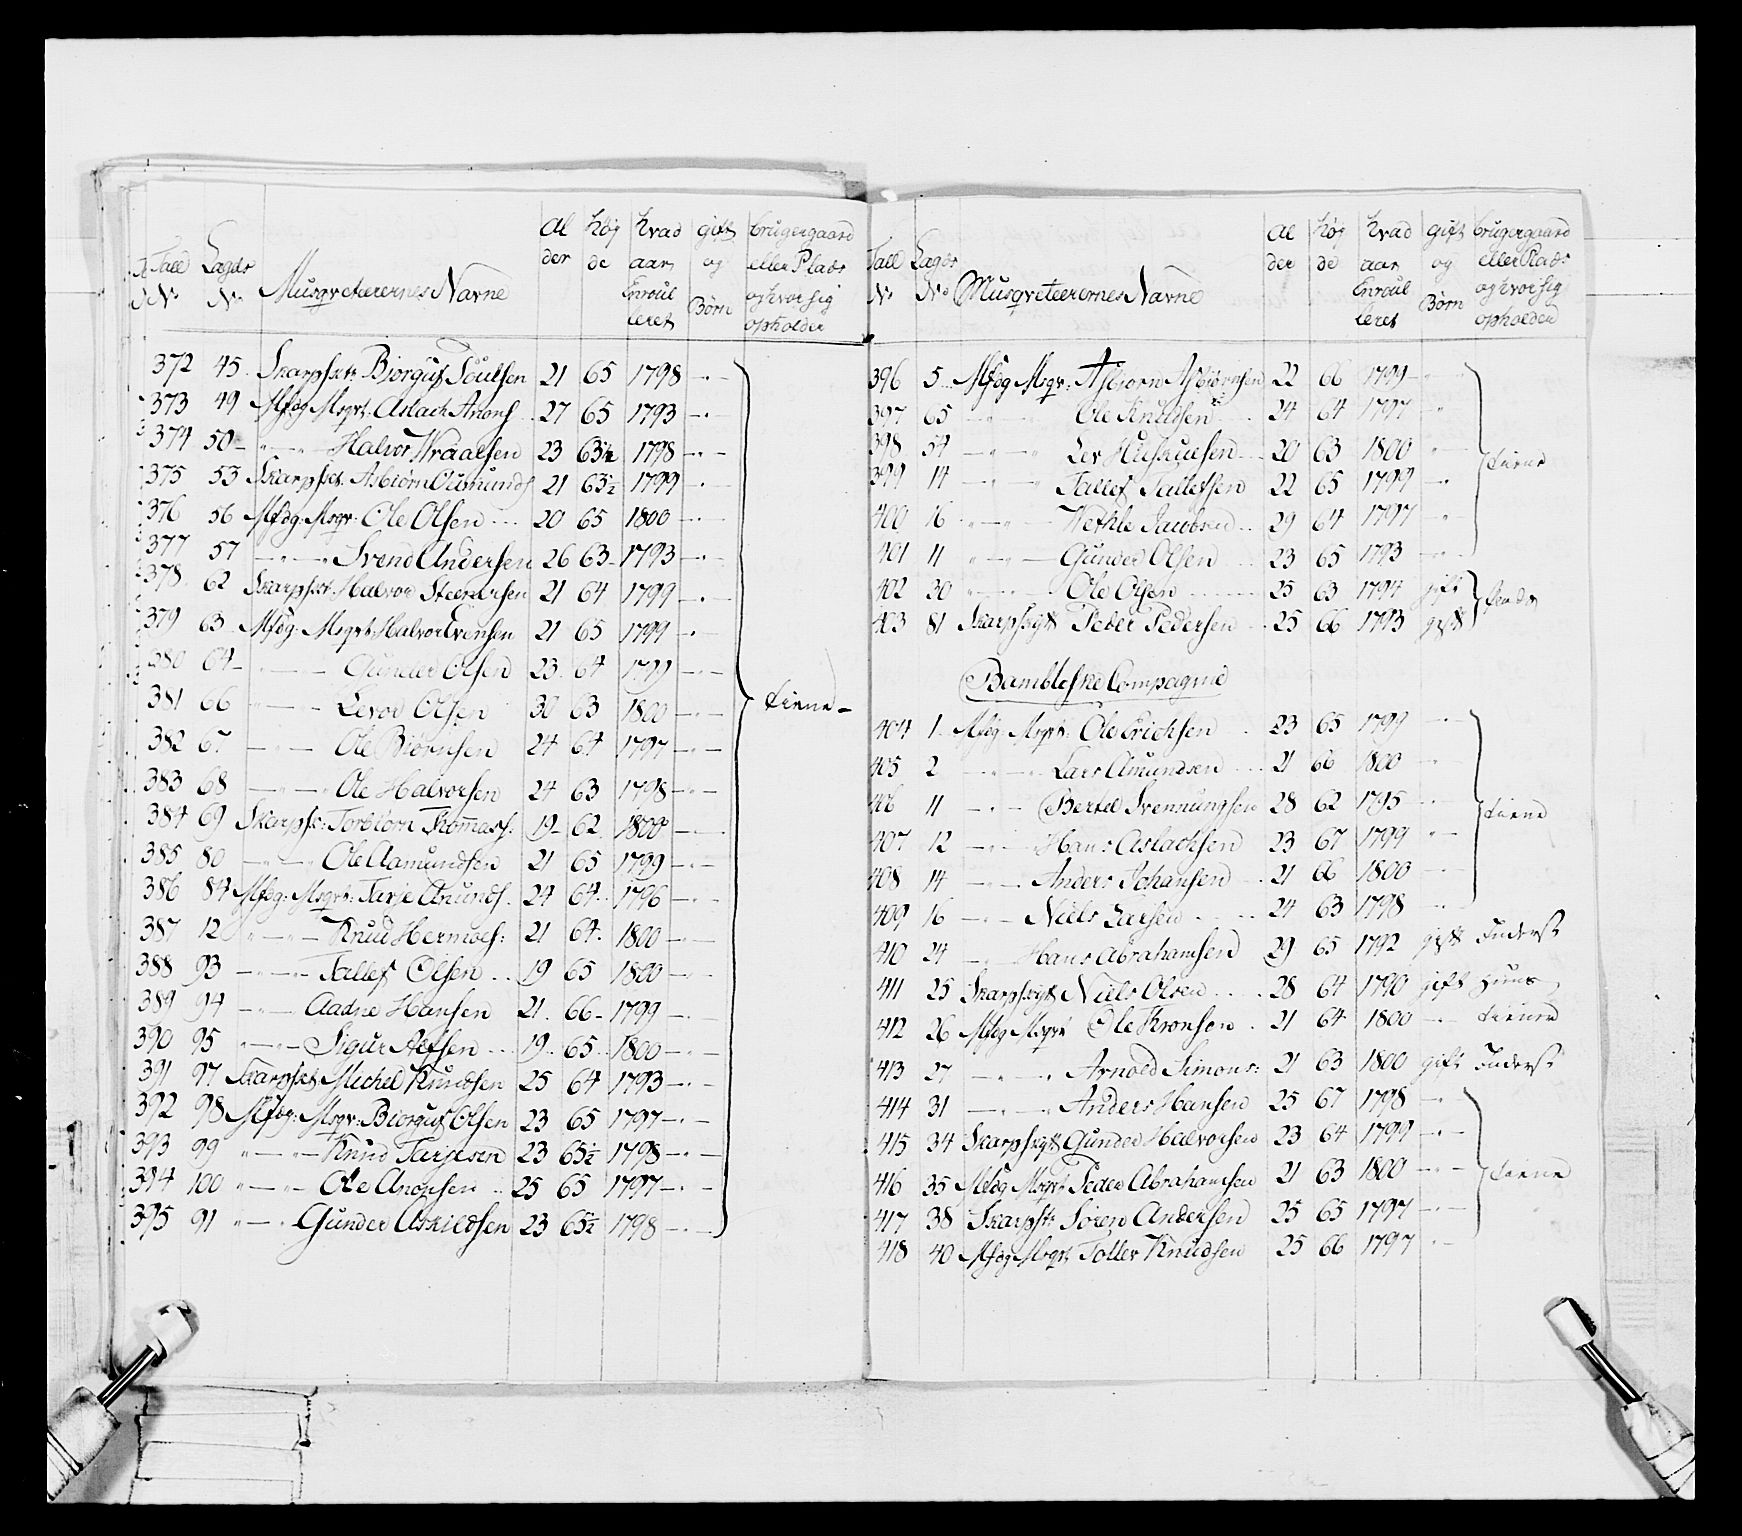 Tall No Lagds No Musqveterernes Navne Al der Høj de Hvad aar Enroul leret gift og Børn brugergaard eller Plads og hvor sig opholder
372 45 Skarpsk: Biorguf Soulsen 21 65 1798 - " -
373 49 Mfdg Msqvt: Aslach Anons 27 65 1793 - " -
374 50 - " - Halvor Wraalsen 23 63½ 1798 - " -
375 53 Skarpsk. Asbiørn Oümunds 21 63½ 1799 - " -
376 56 Mfdg: Msqv: Ole Olsen 20 65 1800 - " -
377 57 - " - Svend Andersen 26 63 1793 - " -
378 62 Skarpskt. Halvor Steenersen 21 64 1799 - " -
379 63 Mfdg: Msqvt Halvor Evensen 21 65 1799 - " -
380 64 - " - Gunder Olsen 23 64 1799 - " -
381 66 - " - Levor Olsen 30 63 1800 - " - tiener
382 67 - " - Ole Biørnsen 24 64 1797 - " -
383 68 - " - Ole Halvorsen 24 63 1798 - " -
384 69 Skarpsk: Torbiorn Thomass: 19 62 1800 - " -
385 80 - " - Ole Aamundsen 21 65 1799 - " -
386 84 Mfdg: Msqvt: Tarje Anunds. 24 64 1796 - " -
387 12 - " - Knud Hermoes: 21 64 1800 - " -
388 93 - " - Tallef Olsen 19 65 1800 - " -
389 94 - " - Aadne Hansen 21 66 1799 - " -
390 95 - " - Sigur Alfsen 19 65 1800 - " -
391 97 Skarpskt Michel Knudsen 25 64 1793 - " -
392 98 Mfdg: Msqv: Biorguf Olsen 23 65 1797 - " -
393 99 " - " - Knud Tarjesen 23 65½ 1798 - " -
394 100 " - " - Ole Anonsen 25 65 1797 - " -
395 91 " - " Gunder Askildsen 23 65½ 1798 - " -
Tall No Lagds No Musqveteerernes Navne Al der høj de hvad aar Enroul leret gift og Børn brugergaard eller Plads og hvor sig opholder
396 5 Mfdg Msqv: Asbiorn Asbiørnsen 22 66 1799 - " -
397 65 - " - Ole Knudsen 24 64 1797 "
398 54 - " - Lev 20 63 1800 "
399 14 - " - Tallef Tallefsen 22 65 1799 - " tiener
400 16 - " - Jacobsen 29 64 1797 "
401 11 - " - Gunder Olsen 23 65 1793 "
402 30 - " - Ole Olsen 25 63 1794 gift
403 81 Skarpsgt Peder Pedersen 25 66 1793 gift
Bambleske Compagnie
404 1 Mfdg Msqvt: Ole Erichsen 23 65 1799 - " -
405 2 - " - Lars Amundsen 21 66 1800 "
406 11 - " - Bertel Svennungsen 28 62 1795 - " -
407 12 - " - Hans Aslachsen 23 67 1799 " - tiener
408 14 - " - Anders Johansen 21 66 1800 - " -
409 16 - " - Niels Larsen 24 63 1798 "
410 24 - " Hans Abrahamsen 29 65 1792 gift Inderst
411 25 Skarpsgt Niels Olsen 28 64 1790 gift Huus
412 26 Mfdg Msqvt Ole Aronsen 21 64 1800 - " - tiener
413 27 - " - Arnold Simons: 21 63 1800 gift Inderst
414 31 - " - Anders Hansen 25 67 1798 - "
415 34 Skarpsgt Gunder Halvorsen 23 64 1799 - " -
416 35 Mfdg Msqvt Peder Abrahamsen 21 63 1800 - " - tiener
417 38 Skarpsk: Sören Andersen 25 65 1797 - " -
418 40 Mfdg Msqvt Toller Knudsen 25 66 1797 - " -